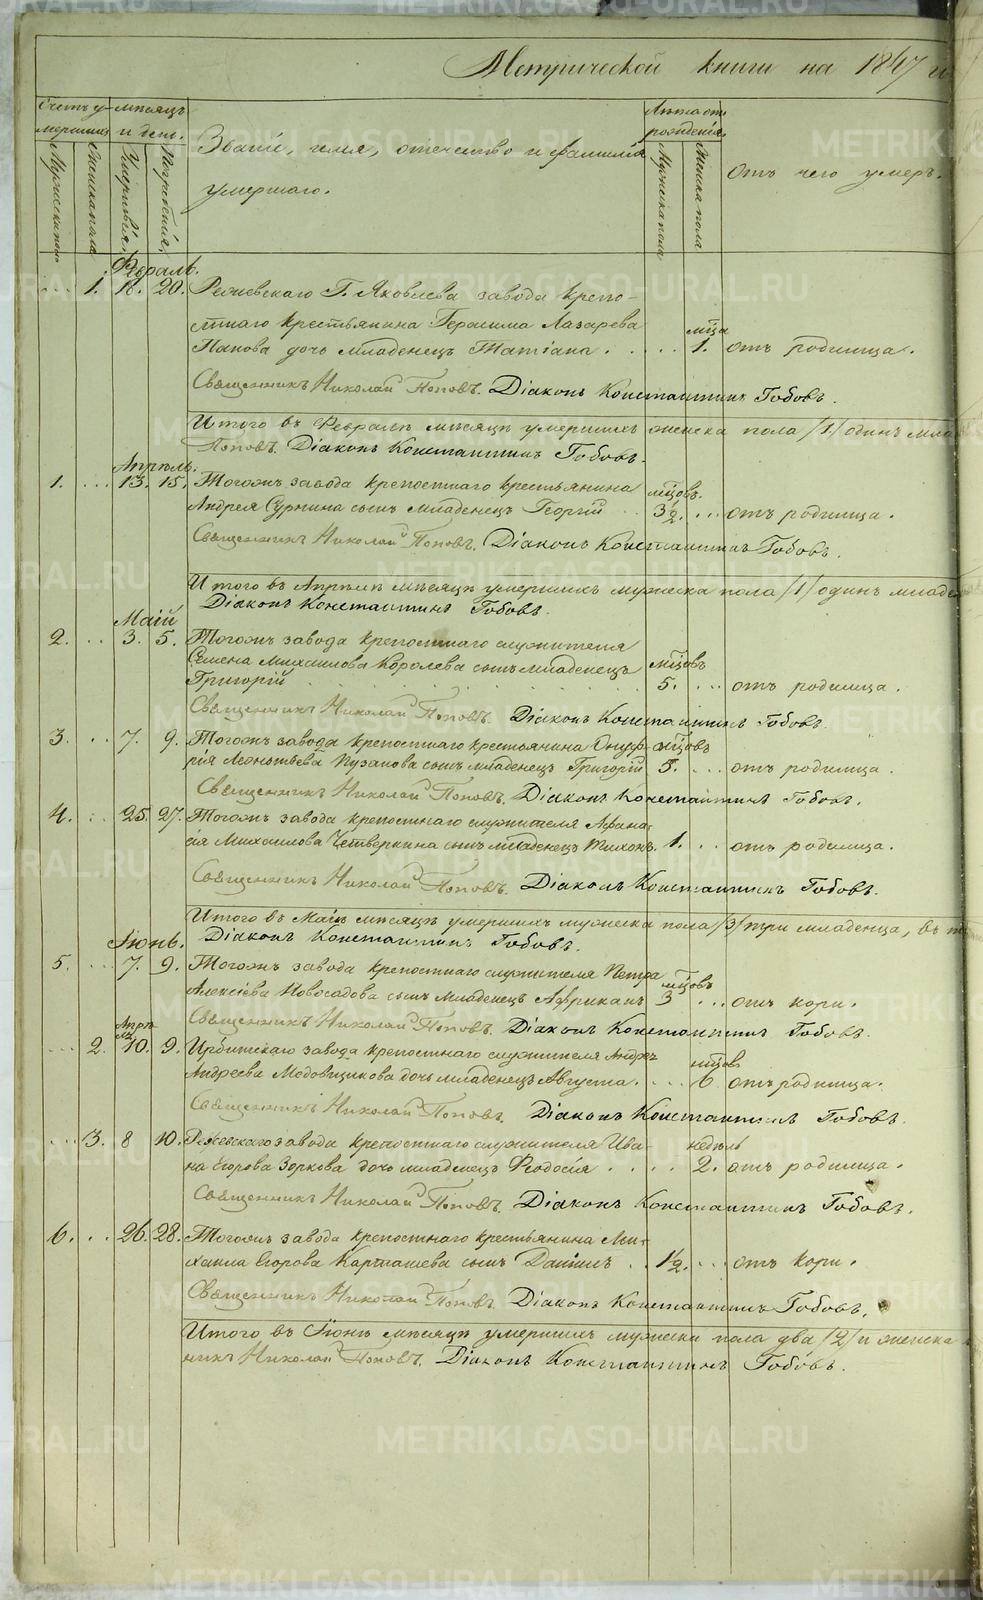 Метрической книги на 1847 и
Счетъ у- мѣсяцъ
мершихъ и день.
Лѣта отъ
рожденія,
Мужеска пола
Женска пола
Умертвія,
Погребенія,
Званіе, имя, отечество и фамилія
умершаго.
Мужеска пола
Женска пола
Отъ чего умеръ.
Февраль.
1. 18. 20. Режевскаго Г. Яковлева завода крепо-
стнаго крестьянина Герасима Лазарева мѣца
Попова дочь младенецъ Татіана. 1. отъ родимца.
Священникъ Николай Поповъ. Діаконъ Константинъ Гобовъ.
Итого въ Февралѣ мѣсяцѣ умершихъ женска пола /1/ одинъ мла
Поповъ. Діаконъ Константинъ Гобовъ.
Апрѣль.
1. 13. 15. Тогожъ завода крепостнаго крестьянина мѣцовъ.
Андрея Сурнина сынъ младенецъ Георгій 3½. отъ родимца.
Священникъ Николай Поповъ. Діаконъ Константинъ Гобовъ.
Итого въ Апрѣлѣ мѣсяцѣ умершихъ мужеска пола /1/ одинъ младе
Діаконъ Константинъ Гобовъ.
Маій
2. 3. 5. Тогожъ завода крепостнаго служителя
Семена Михаилова Королева сынъ младенецъ мѣцовъ
Григорій 5. отъ родимца.
Священникъ Николай Поповъ. Діаконъ Константинъ Гобовъ.
3. 7. 9. Тогожъ завода крепостнаго крестьянина Онуф- мѣцовъ
рія Леонтьева Пузанова сынъ младенецъ Григорій 5. отъ родимца.
Священникъ Николай Поповъ. Діаконъ Константинъ Гобовъ.
4. 25. 27. Тогожъ завода крепостнаго служителя Афана-
сія Михаилова Четверкина сынъ младенецъ Тихонъ. 1. отъ родимца.
Священникъ Николай Поповъ. Діаконъ Константинъ Гобовъ.
Итого въ Маіѣ мѣсяцѣ умершихъ мужеска пола /3/ три младенца, въ т
Діаконъ Константинъ Гобовъ.
Іюнь.
5. 7. 9. Тогожъ завода крепостнаго служителя Петра мѣцовъ
Алексіева Новосадова сынъ младенецъ Африканъ 3 отъ кори.
Священникъ Николай Поповъ. Діаконъ Константинъ Гобовъ.
2. 10. 9. Ирбитскаго завода крепостнаго служителя Андрѣ мѣцовъ
Андреева Медовщикова дочь младенецъ Августа. 6. отъ родимца.
Священникъ Николай Поповъ. Діаконъ Константинъ Гобовъ.
3. 8 10. Режевскаго завода крепостнаго служителя Ива- недѣль
на Егорова Зоркова дочь младенецъ Феодосія 2. отъ родимца.
Священникъ Николай Поповъ. Діаконъ Константинъ Гобовъ.
6. 26. 28. Тогожъ завода крепостнаго крестьянина Ми-
хаила Егорова Карташева сынъ Даніилъ 1½. отъ кори.
Священникъ Николай Поповъ. Діаконъ Константинъ Гобовъ.
Итого въ Іюнѣ мѣсяцѣ умершихъ мужеска пола два /2/ и женска
никъ Николай Поповъ. Діаконъ Константинъ Гобовъ.
METRIKI.GASO-URAL.RU